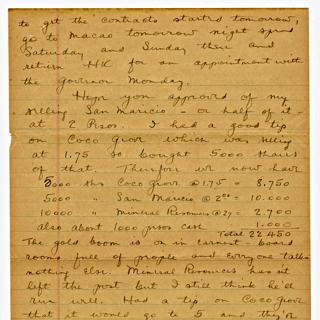 to get the contracts started tomorrow,
go to Macao tomorrow night spend
Saturday and Sunday there and
return HK for an appointment with
the Governor Monday.
Hope you approved of my
selling San Maricio - or half of it -
at 2 Pesos. I had a good tip
on Coco Grove which was selling
at 1.75 so bought 5000 shares
of that. Therefore we now have
5000 shs Coco Grove @ 1.75 = 8.750
5000 " San Maricio @ 2.00 = 10.000
10000 " Mineral Resources @ 27 = 2.700
also about 1000 pesos cash 1.000
Total 22.450
The gold boom is on in earnest - board
rooms full of people and everyone talks
nothing else. Mineral Resources has not
left the post but I still think he'll
run well. Had a tip on Coco Grove
that it would go to 5 and they're